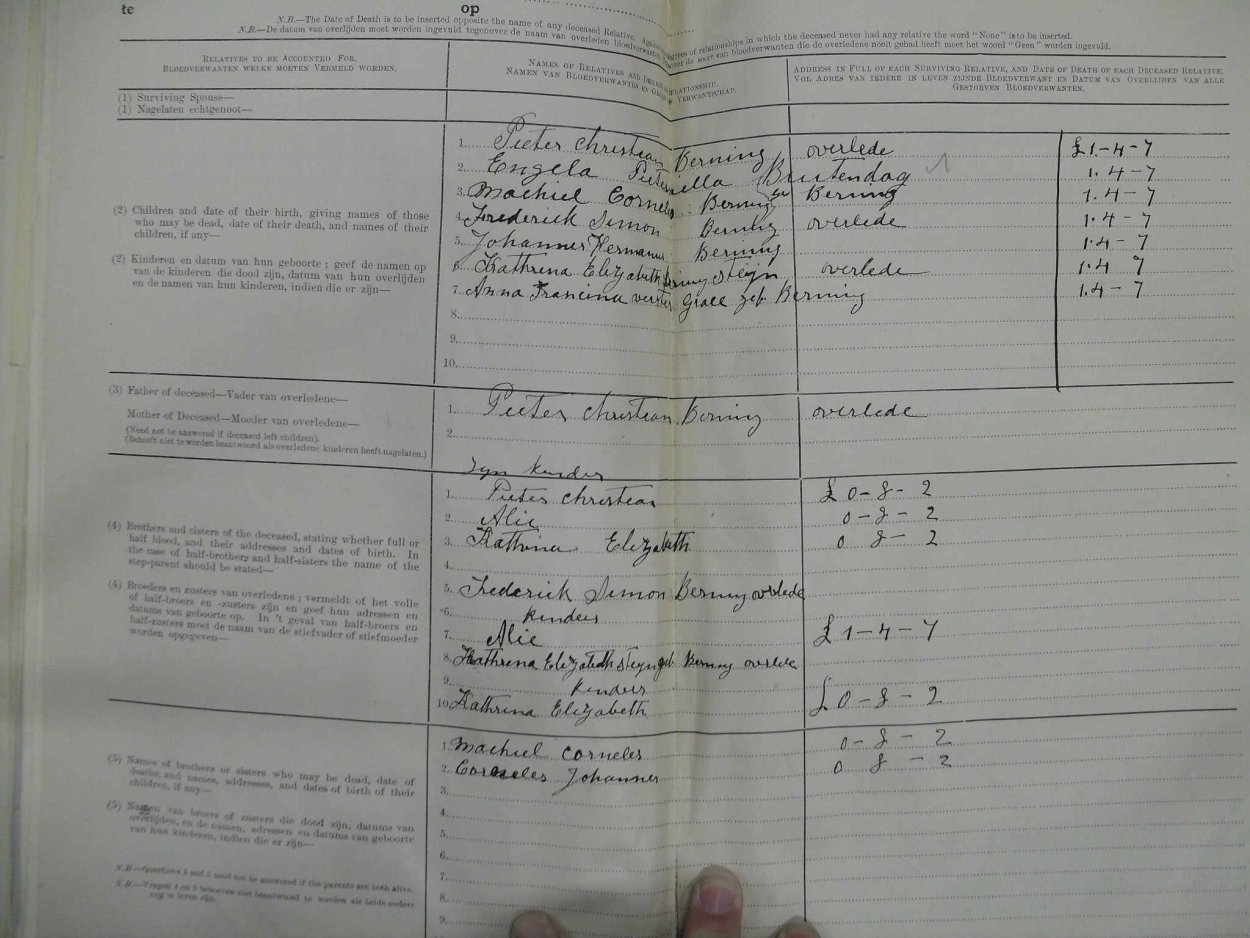 te op
N.B.—The Date of Death is to be inserted opposite the name of any deceased Relative. Against degrees of relationships in which the deceased never had any relative the word "None" is to be inserted.
N.B.—De datum van overlijden moet worden ingevuld tegenover de naam van overleden bloedverwanten, over de soort van bloedverwanten die de overledene nooit gehad heeft moet het woord "Geen" worden ingevuld.
RELATIVES TO BE ACCOUNTED FOR.
BLOEDVERWANTEN WELKE MOETEN VERMELD WORDEN.
NAMES OF RELATIVES AND RELATIONSHIP.
NAMEN VAN BLOEDVERWANTEN EN VERWANTSCHAP.
ADDRESS IN FULL OF EACH SURVIVING RELATIVE, AND DATE OF DEATH OF EACH DECEASED RELATIVE.
VOL ADRES VAN IEDERE IN LEVEN ZIJNDE BLOEDVERWANT EN DATUM VAN OVERLIJDEN VAN ALLE
GESTORVEN BLOEDVERWANTEN.
(1) Surviving Spouse—
(1) Nagelaten echtgenoot—
(2) Children and date of their birth, giving names of those
who may be dead, date of their death, and names of their
children, if any—
(2) Kinderen en datum van hun geboorte; geef de namen op
van de kinderen die dood zijn, datum van hun overlijden
en de namen van hun kinderen, indien die er zijn—
1. Pieter Christian Berning overlede £1-4-7
2. Engela Pieternella Buitendag 1.4-7
3. Machiel Corneles Berning Berning 1.4-7
4. Frederick Simon Berning overlede 1.4-7
5. Johannes Hermanus Berning 1.4-7
6. Kathrina Elizabeth Berning Steijn overlede 1.4 7
7. Anna Francina verster Grace geb. Berning 1.4-7
8.
9.
10.
(3) Father of deceased—Vader van overledene—
Mother of Deceased—Moeder van overledene—
(Need not be answered if deceased left children).
(Behoeft niet te worden beantwoord als overledene kinderen heeft nagelaten.)
1. Pieter Christian Berning overlede
2.
Zyn kinders
(4) Brothers and sisters of the deceased, stating whether full or
half blood, and their addresses and dates of birth. In
the case of half-brothers and half-sisters the name of the
step-parent should be stated—
(4) Broeders en zusters van overledene; vermeldt of het volle
of half-broers en -zusters zijn en geef hun adressen en
datums van geboorte op. In 't geval van half-broers en
half-zusters moet de naam van de stiefvader of stiefmoeder
worden opgegeven—
1. Pieter Christian £0-8-2
2. Alie 0-8-2
3. Kathrina Elizabeth 0 8-2
4.
5. Frederick Simon Berning overlede
6. kinders
7. Alie £1-4-7
8. Kathrina Elizabeth Steyn geb Berning overlede
9. kinders
10. Kathrina Elizabeth £0-8-2
(5) Names of brothers or sisters who may be dead, date of
deaths, and names, addresses, and dates of birth of their
children, if any—
(5) Namen van broers of zusters die dood zijn, datums van
overlijden, en de namen, adressen en datums van geboorte
van hun kinderen, indien die er zijn—
1. Machiel Corneles 0-8-2
2. Corneles Johannes 0 8-2
3.
4.
5.
6.
7.
8.
9.
N.B.—Questions 4 and 5 need not be answered if the parents are both alive.
N.B.—Vragen 4 en 5 behoeven niet beantwoord te worden als beide ouders
nog in leven zijn.